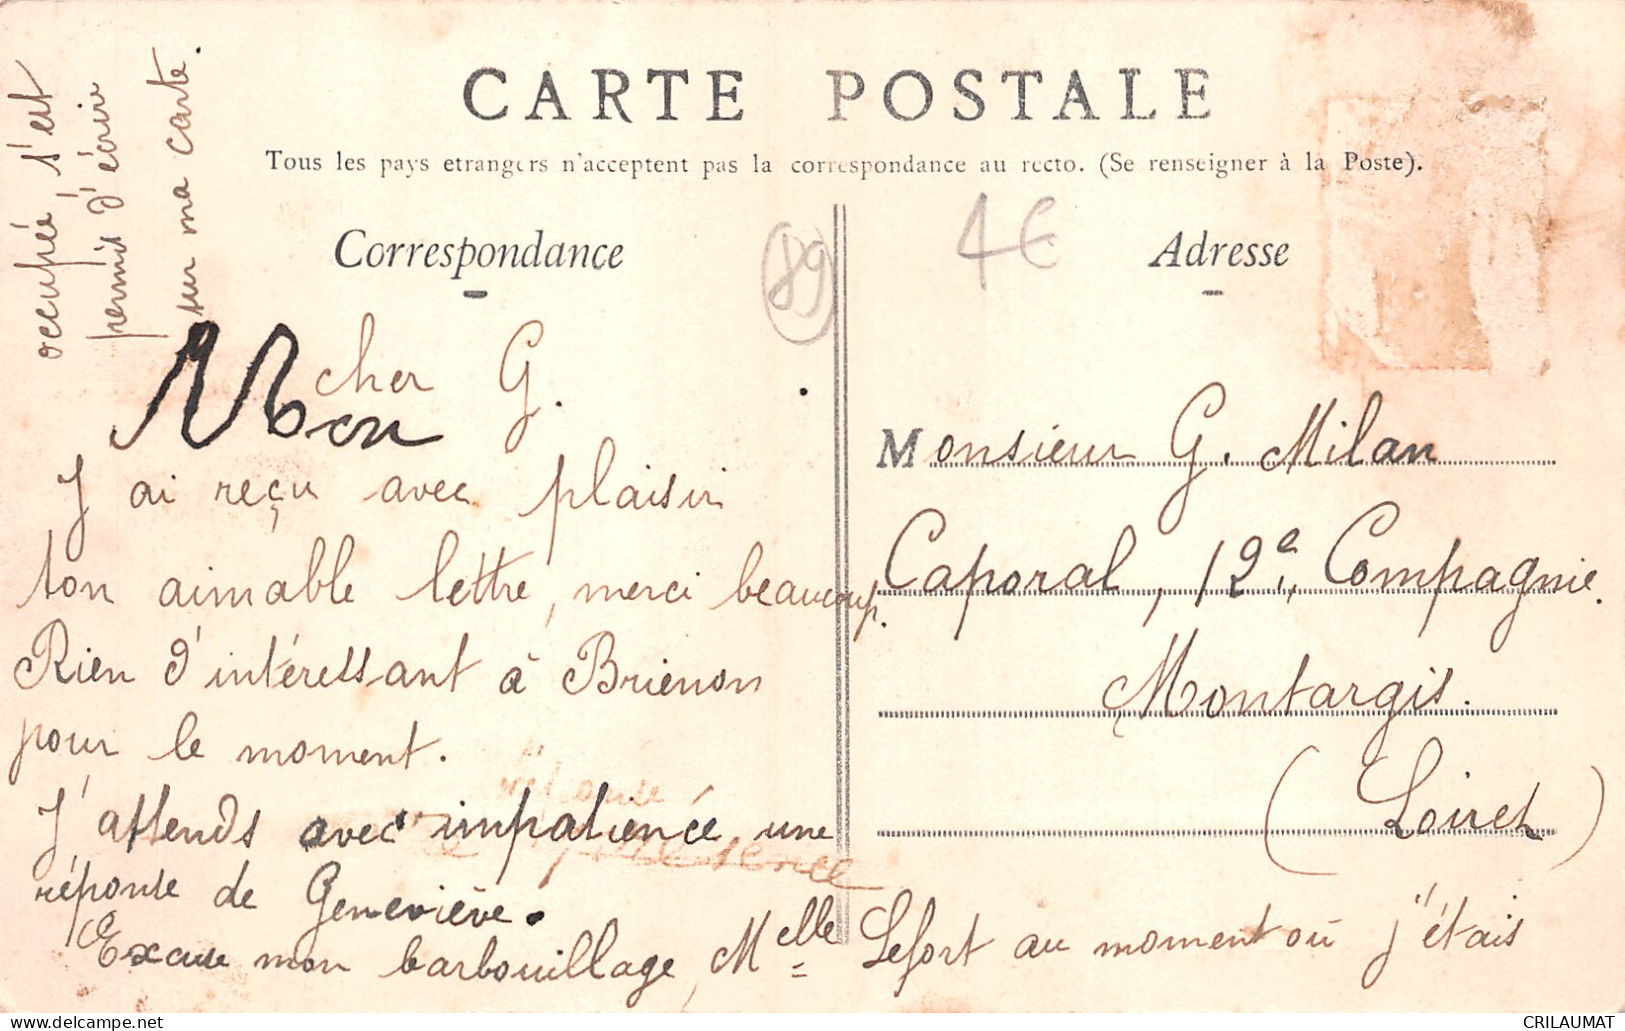 CARTE POSTALE
Tous les pays etrangers n'acceptent pas la correspondance au recto. (Se renseigner à la Poste).
Correspondance
89
4€
Adresse
Mon cher G.
J'ai reçu avec plaisir
ton aimable lettre, merci beaucoup.
Rien d'intéressant à Brienon
pour le moment.
J'attends avec impatience une
réponse de Geneviève.
Excuse mon barbouillage, Melle Lefort au moment où j'étais
occupée, s'est
permis d'écrire
sur ma carte.
Monsieur G. Milan
Caporal, 12e Compagnie.
Montargis.
(Loiret)
CRILAUMAT